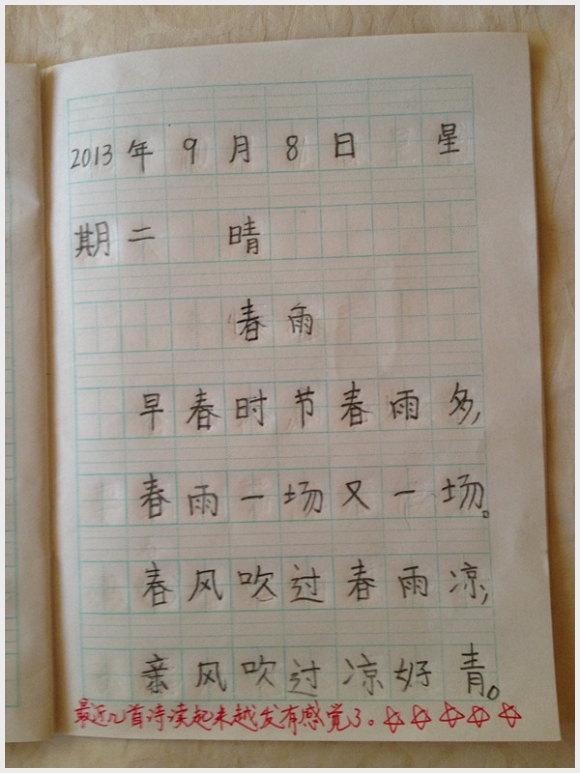 2013年9月8日 星
期二 晴
春雨
早春时节春雨多,
春雨一场又一场。
春风吹过春雨凉,
亲风吹过凉好青。
最近几首诗读起来越发有感觉了。☆☆☆☆☆